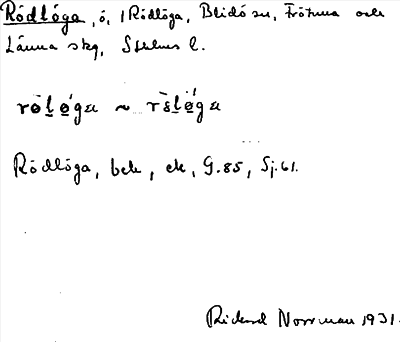 Rödlöga, ö, i Rödlöga, Blidö sn, Frötuna och
Länna skg, Sthlms l.
Rödlöga, bek, ek, G.85, Sj.61.
Rickard Norrman 1931.